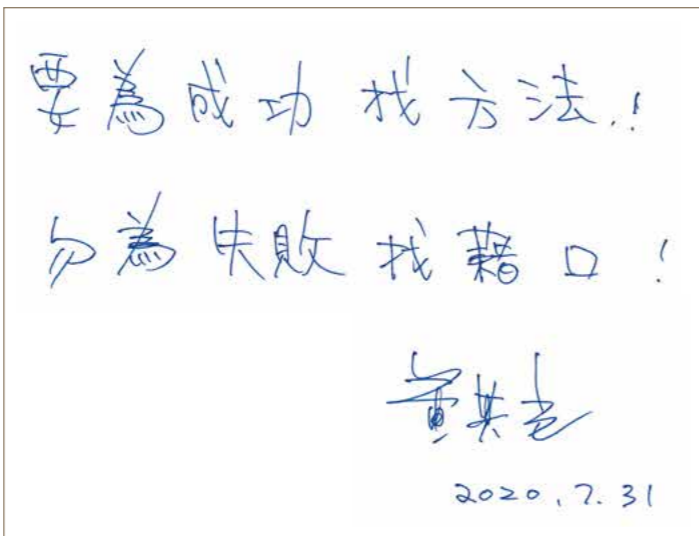 要為成功找方法!
勿為失敗找藉口!
黃其光
2020.7.31